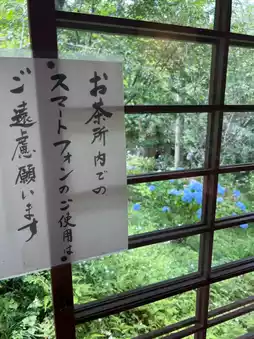 お茶所内での
・スマートフォンのご使用は・
ご遠慮願います